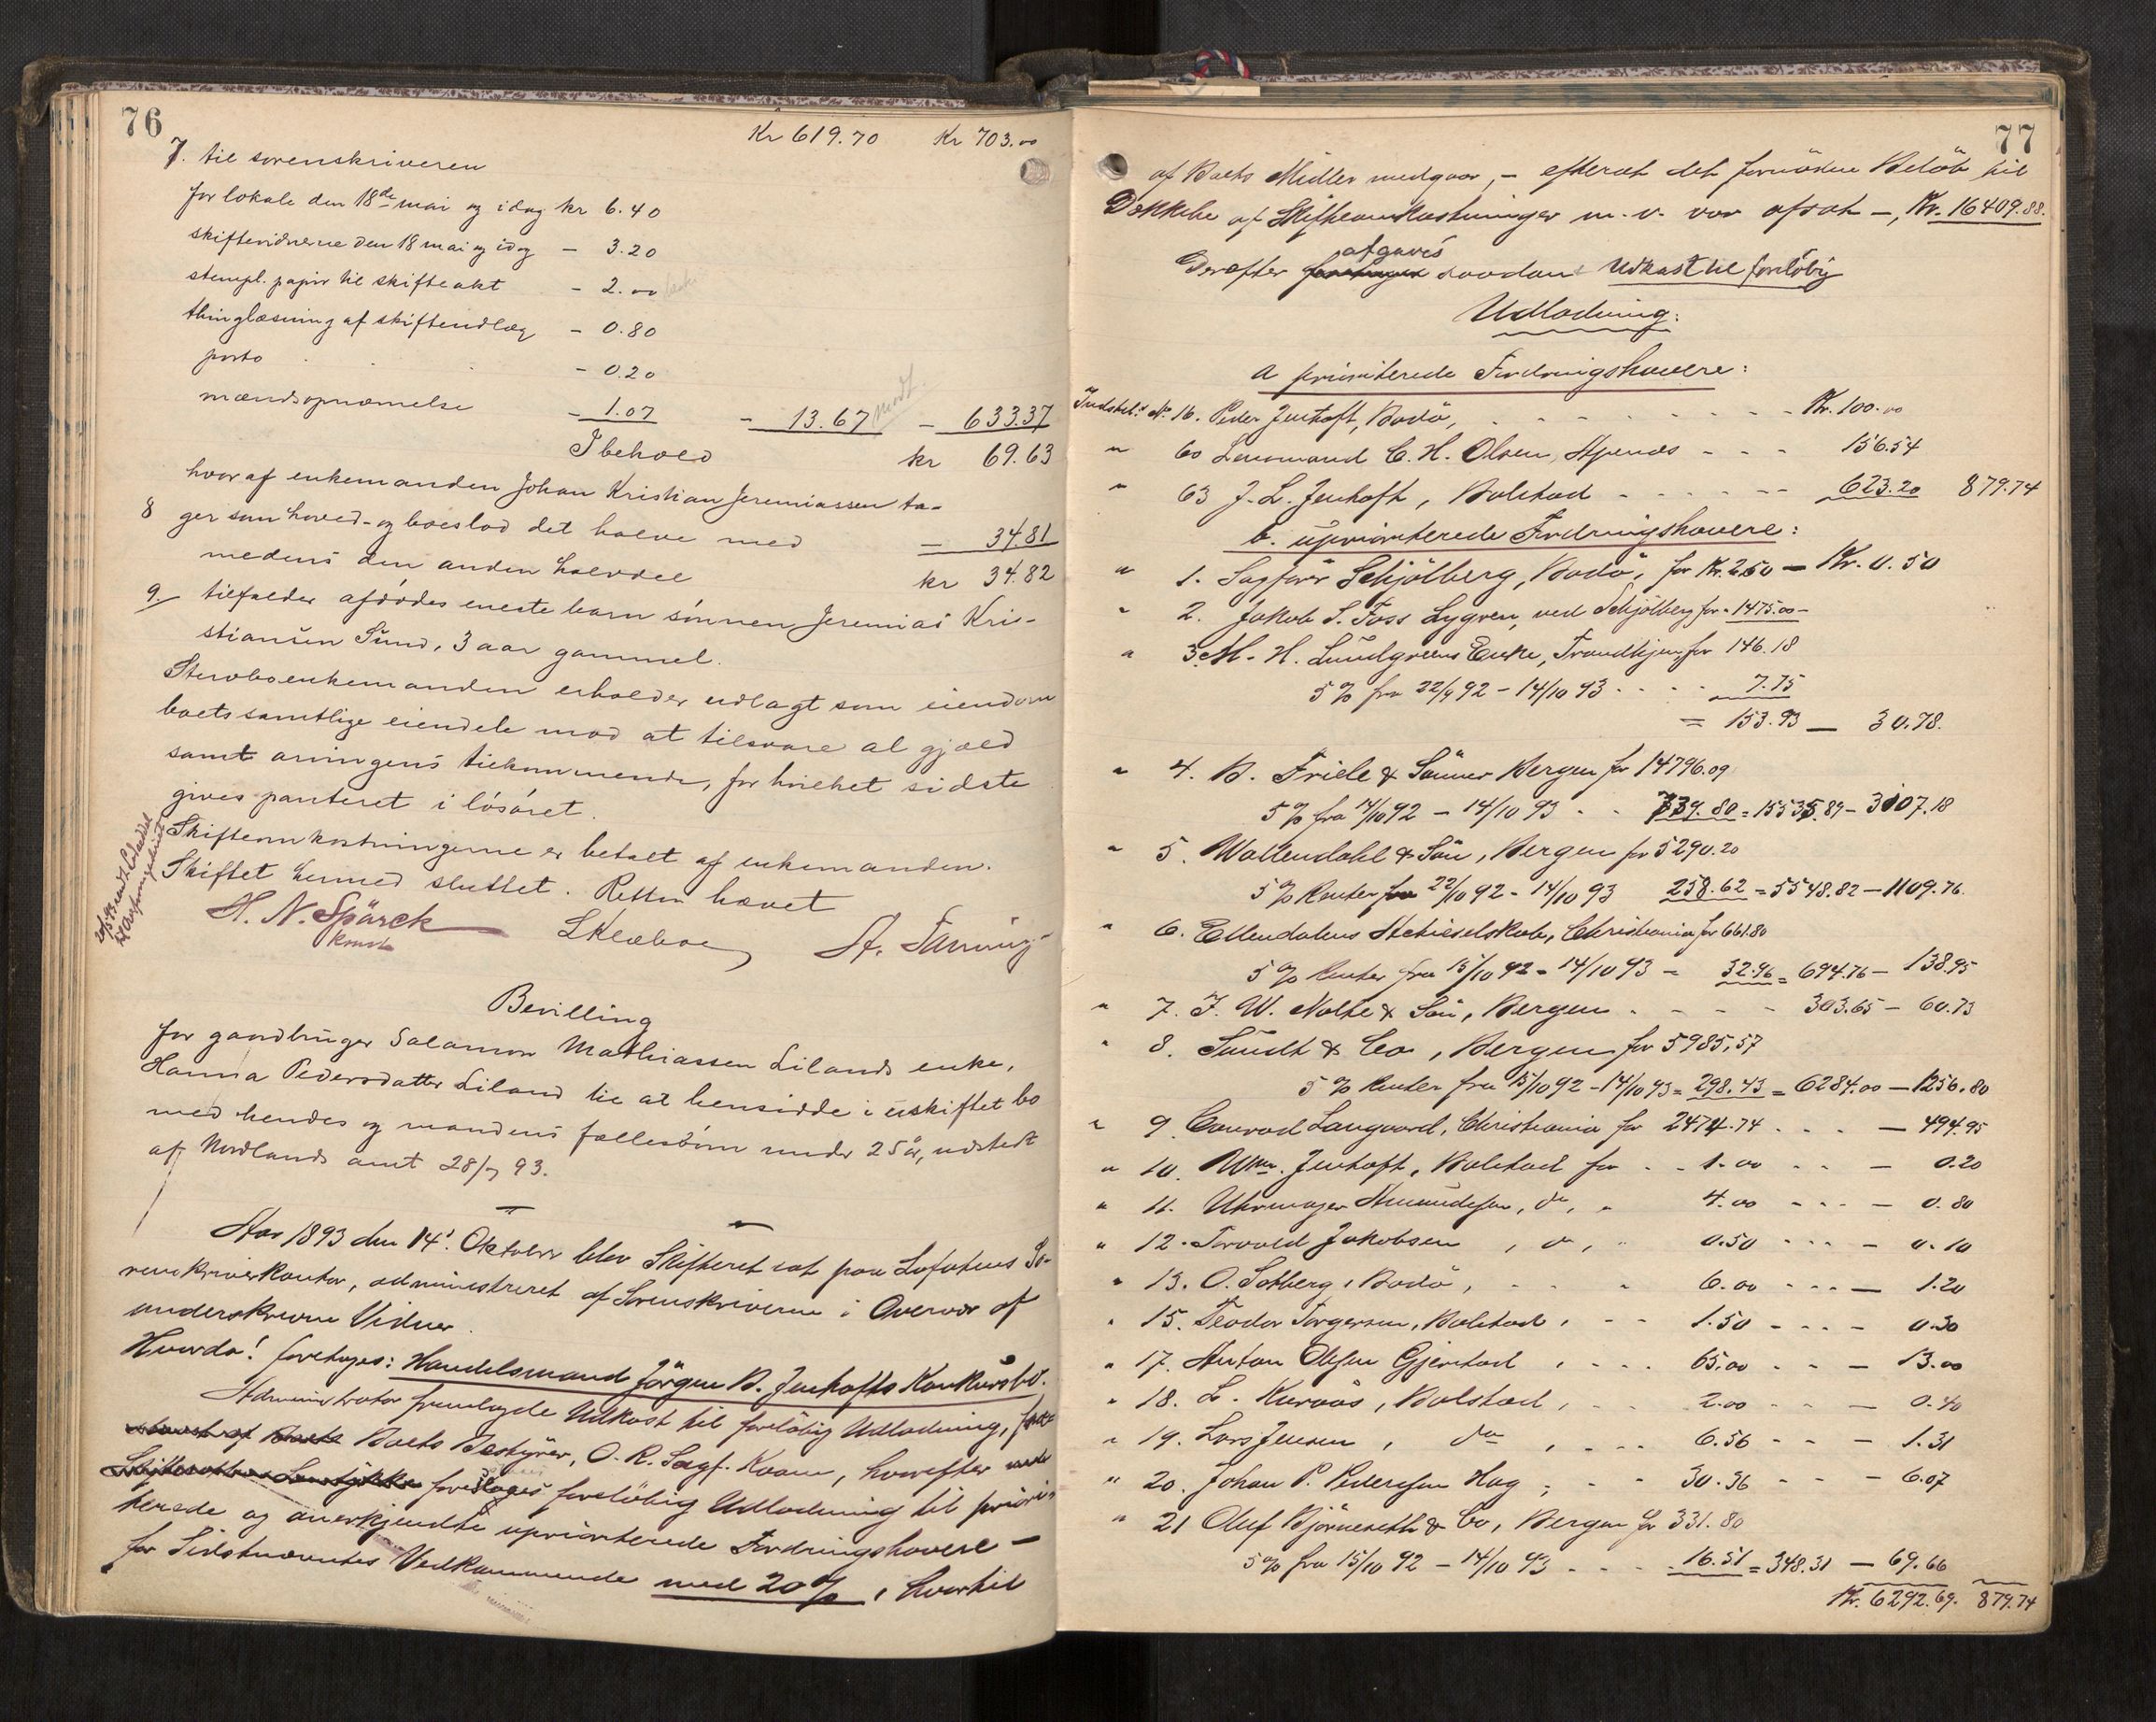 76
Kr 619.70 Kr 703.00
7. til sorenskriveren
for lokale den 18de mai og idag kr 6.40
skiftevidnerne den 18 mai og idag - 3.20
stempl. papir til skifteakt - 2.00
thinglæsning af skifteudlæg - 0.80
porto - 0.20
mændsopnævnelse - 1.07 - 13.67 - 633.37
I behold kr 69.63
hvoraf enkemanden Johan Kristian Jeremiassen ta-
8 ger som hoved- og boeslod det halve med - 34.81
medens den anden halvdel kr 34.82
9. tilfalder afdødes eneste barn sønnen Jeremias Kris-
tiansen Sund, 3 aar gammel.
Stervboenkemanden erholder udlagt som eiendom
boets samtlige eiendele mod at tilsvare al gjæld
samt arvingens tilkommende, for hvilket sidste
gives panteret i løsøret.
Skifteomkostningerne er betalt af enkemanden.
Skiftet hermed sluttet. Retten hævet
H. N. Spärck LKlæboe A. Fanning
Konst.
Bevilling
for gaardbruger Salamon Mathiassen Lilands enke,
Hanna Pedersdatter Liland til at hensidde i uskiftet bo
med hendes og mandens fællesbørn under 25 år, udstedt
af Nordlands amt 28/7 93.
Aar 1893 den 14de Oktober blev Skifteret sat paa Lofotens So-
renskriverkontor, administreret af Sorenskriveren i Overvær af
underskrevne Vidner.
Hvorda! foretoges: Handelsmand Jörgen B. Jenhofts Konkursbo.
Administrator fremlagde Udkast til foreløbig Udlodning,
Boets Bestyrer, O. R. Sagf. Kvam, hvorefter
foresloges foreløbig Udlodning til priori-
terede og anerkjendte upriorterede Fordringshavere -
for Sidstnævntes Vedkommende med 20 %, hvortil
77
af Boets Midler medgaar, - efterat det fornödne Belöb til
Dækkelse af Skifteomkostninger m. v. var afsat -, Kr. 16409.88.
Derefter afgaves saadant Udkast til foreløbig
Udlodning:
a prioriterede Fordringshavere:
Indstil. No 16. Peder Jenhoft, Bodö, - - - Kr. 100.00
" 60 Lensmand C. H. Olsen, Stpenes - - - 156.54
" 63 J. L. Jenhoft, Bolstad - - - 623.20 879.74
b. upriorterede Fordringshavere:
" 1. Sagfører Schjölberg, Bodö, for Kr. 2.50 - Kr. 0.50
" 2. Jakob S. Foss Lygren, ved Schjölberg for - 1475.00 -
" 3. M. H. Lundgreens Enke, Trondhjem for 146.18
5 % fra 22/9 92 - 14/10 93 - - - 7.75
= 153.93 - 30.78.
" 4. B. Friele & Sönner Bergen for 14796.09
5 % fra 14/10 92 - 14/10 93 - - 739.80 = 15535.89 - 3107.18
" 5. Wallendahl & Sön, Bergen for 5290.20
5 % Renter fra 22/10 92 - 14/10 93 258.62 = 5548.82 - 1109.76.
" 6. Ellendalens Actieselskab, Christiania for 661.80
5 % Renter fra 15/10 92 - 14/10 93 - 32.96 = 694.76 - 138.95
" 7. F. W. Nolte & Sön, Bergen - - - 303.65 - 60.73
" 8. Sundt & Co, Bergen for 5985,57
5 % Renter fra 15/10 92 - 14/10 93 = 298.43 = 6284.00 - 1256.80
" 9. Conrad Langaard, Christiania for 2474.74 - - - 494.95
" 10. Wm. Jenhoft, Bolstad for - - 1.00 - - - 0.20
" 11. Uhrmager Amundsen, do, " 4.00 - - - 0.80
" 12. Torvald Jakobsen, do, " 0.50 - - - 0.10
" 13. O. Solberg, Bodö, - - " 6.00 - - - 1.20
" 15. Teodor Torgersen, Bolstad, - - 1.50 - - - 0.30
" 17. Anton Olsen Gjerstad, - - - 65.00 - - - 13.00
" 18. L. Kuraas, Bolstad, - - 2.00 - - - 0.40
" 19. Lars Jensen, do, - - - 6.56 - - - 1.31
" 20. Johan P. Pedersen Hag, - - 30.36 - - - 6.07
" 21 Oluf Björneseth & Co, Bergen for 331.80
5 % fra 15/10 92 - 14/10 93 - - - 16.51 = 348.31 - 69.66
Kr. 6292.69. 879.74